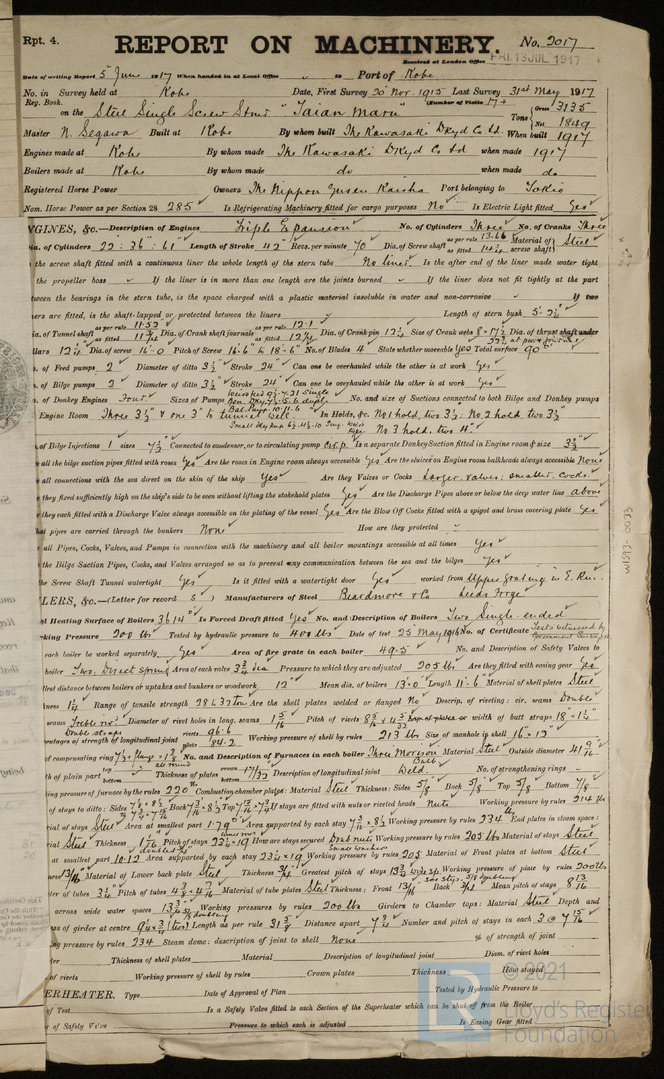 Rpt. 4.
REPORT ON MACHINERY.
No. 2017
Received at London Office FRI. 13 JUL 1917
Date of writing Report 5 June 1917 When handed in at Local Office to Port of Kobe
No. in Survey held at Kobe Date, First Survey 20 Nov. 1915 Last Survey 31st May 1917
Reg. Book. (Number of Visits 17+
on the Steel Single Screw Stmr "Taian Maru" Tons { Gross 3135
Net 1849
Master N. Segawa Built at Kobe By whom built The Kawasaki Dkyd Co Ltd. When built 1917
Engines made at Kobe By whom made The Kawasaki Dkyd Co Ltd when made 1917
Boilers made at Kobe By whom made do when made do
Registered Horse Power Owners The Nippon Yusen Kaisha Port belonging to Tokio
Nom. Horse Power as per Section 28 285 Is Refrigerating Machinery fitted for cargo purposes No Is Electric Light fitted Yes
NGINES, &c.—Description of Engines Triple Expansion No. of Cylinders Three No. of Cranks Three
Dia. of Cylinders 22: 36": 61" Length of Stroke 42" Revs. per minute 70 Dia. of Screw shaft as per rule 13.66 as fitted 14 1/4 Material of screw shaft Steel
the screw shaft fitted with a continuous liner the whole length of the stern tube No liner Is the after end of the liner made water tight
the propeller boss If the liner is in more than one length are the joints burned If the liner does not fit tightly at the part
tween the bearings in the stern tube, is the space charged with a plastic material insoluble in water and non-corrosive If two
ers are fitted, is the shaft lapped or protected between the liners Length of stern bush
ia. of Tunnel shaft as per rule 11.52 Dia. of Crank shaft journals as per rule 12.1 Dia. of Crank pin 12 1/4 Size of Crank webs Dia. of thrust shaft under
llars 12 1/4 Dia. of screw 16'-0 Pitch of Screw 16'-6" to 18'-6" No. of Blades 4 State whether moveable Yes Total surface 90
o. of Feed pumps 2 Diameter of ditto 3 1/2" Stroke 24" Can one be overhauled while the other is at work Yes
o. of Bilge pumps 2 Diameter of ditto 3 1/2" Stroke 24" Can one be overhauled while the other is at work Yes
o. of Donkey Engines Four Sizes of Pumps No. and size of Suctions connected to both Bilge and Donkey pumps
Engine Room Three 3 1/2" & one 3" to tunnel well In Holds, &c. No 1 hold, two 3 1/2. No 2 hold two 3 1/2"
No 3 hold. two 4"
of Bilge Injections 1 sizes 7 1/2 Connected to condenser, or to circulating pump Cir. p. Is a separate Donkey Suction fitted in Engine room & size 3 1/2"
all the bilge suction pipes fitted with roses Yes Are the roses in Engine room always accessible Yes Are the sluices on Engine room bulkheads always accessible None
all connections with the sea direct on the skin of the ship Yes Are they Valves or Cocks Larger valves: smaller cocks
they fixed sufficiently high on the ship's side to be seen without lifting the stokehold plates Yes Are the Discharge Pipes above or below the deep water line above
they each fitted with a Discharge Valve always accessible on the plating of the vessel Yes Are the Blow Off Cocks fitted with a spigot and brass covering plate Yes
hat pipes are carried through the bunkers None How are they protected
all Pipes, Cocks, Valves, and Pumps in connection with the machinery and all boiler mountings accessible at all times Yes
the Bilge Suction Pipes, Cocks, and Valves arranged so as to prevent any communication between the sea and the bilges Yes
he Screw Shaft Tunnel watertight Yes Is it fitted with a watertight door Yes worked from Upper grating in E. Rm.
LERS, &c.—(Letter for record S) Manufacturers of Steel Beardmore & Co Leeds Forge
al Heating Surface of Boilers 3614 Is Forced Draft fitted Yes No. and Description of Boilers Two Single-ended
king Pressure 200 lbs Tested by hydraulic pressure to 400 lbs Date of test 25 May 1916 No. of Certificate Tests witnessed by
each boiler be worked separately Yes Area of fire grate in each boiler 49.5 No. and Description of Safety Valves to
boiler Two. Direct spring Area of each valve Pressure to which they are adjusted 205 lbs Are they fitted with easing gear Yes
llest distance between boilers or uptakes and bunkers or woodwork 12" Mean dia. of boilers 13'-0 Length 11'-6" Material of shell plates Steel
kness 1 1/4 Range of tensile strength 28 & 32 ton Are the shell plates welded or flanged No Descrip. of riveting: cir. seams Double
seams Treble riv. Diameter of rivet holes in long. seams 1 5/16 Pitch of rivets Lap of plates or width of butt straps
entages of strength of longitudinal joint rivets 96.6 plate 84.2 Working pressure of shell by rules 213 lbs Size of manhole in shell 16 × 12
of compensating ring No. and Description of Furnaces in each boiler Three Morison Material Steel Outside diameter 41 9/16
th of plain part Thickness of plates 17/32 Description of longitudinal joint Weld. No. of strengthening rings
ing pressure of furnace by the rules 220 lb Combustion chamber plates: Material Steel Thickness: Sides 5/8 Back 5/8 Top 5/8 Bottom 7/8
of stays to ditto: Sides Back Top If stays are fitted with nuts or riveted heads Nuts Working pressure by rules 214 lbs
ial of stays Steel Area at smallest part 1.79 Area supported by each stay Working pressure by rules 234 lbs End plates in steam space:
ial Steel Thickness Pitch of stays 22 1/4 × 19 How are stays secured Working pressure by rules 205 lbs Material of stays Steel
at smallest part 10.12 Area supported by each stay Working pressure by rules 205 Material of Front plates at bottom Steel
ness 13/16 Material of Lower back plate Steel Thickness Greatest pitch of stays Working pressure of plate by rules 200 lbs
ter of tubes 3 1/4 Pitch of tubes Material of tube plates Steel Thickness: Front 13/16 Back Mean pitch of stays
across wide water spaces Working pressures by rules 200 lbs Girders to Chamber tops: Material Steel Depth and
ess of girder at centre Length as per rule 31 Distance apart Number and pitch of stays in each
ng pressure by rules 234 Steam dome: description of joint to shell None % of strength of joint
ter Thickness of shell plates Material Description of longitudinal joint Diam. of rivet holes
of rivets Working pressure of shell by rules Crown plates Thickness How stayed
ERHEATER. Type Date of Approval of Plan Tested by Hydraulic Pressure to
of Test Is a Safety Valve fitted to each Section of the Superheater which can be shut off from the Boiler
r of Safety Valve Pressure to which each is adjusted Is Easing Gear fitted
W1593-0033
© 2021
Lloyd's Register
Foundation